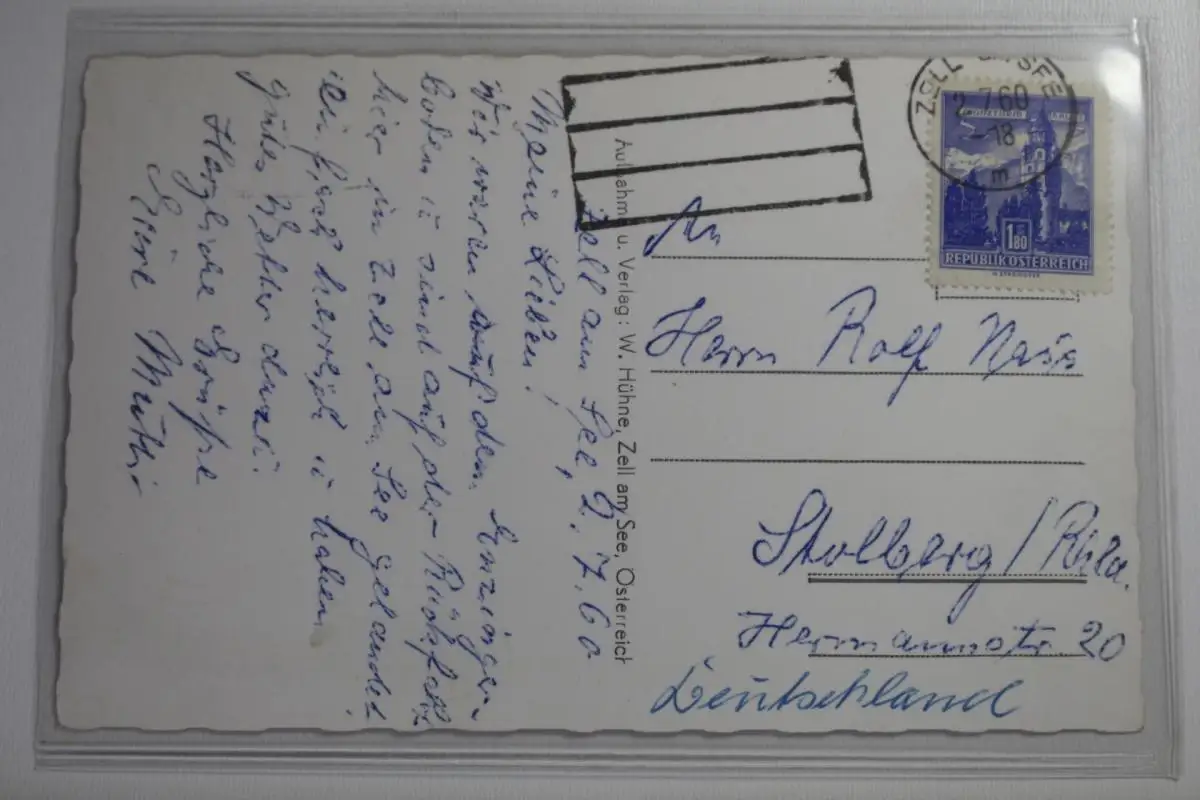 Zell am See, 2.7.60
Meine Lieben!
Wir waren auf dem Enzinger-
boden u. sind auf der Rückfahrt
hier in Zell am See gelandet.
Ist herrlich u. haben
gutes Wetter dazu.
Herzliche Grüße
Eure Mutti
Aufnahme u. Verlag: W. Hühne, Zell am See, Österreich
ZELL AM SEE
2.7.60
-18
m
1.80
REPUBLIK ÖSTERREICH
An
Herrn Rolf
Stolberg/Rhld.
Hermannstr. 20
Deutschland